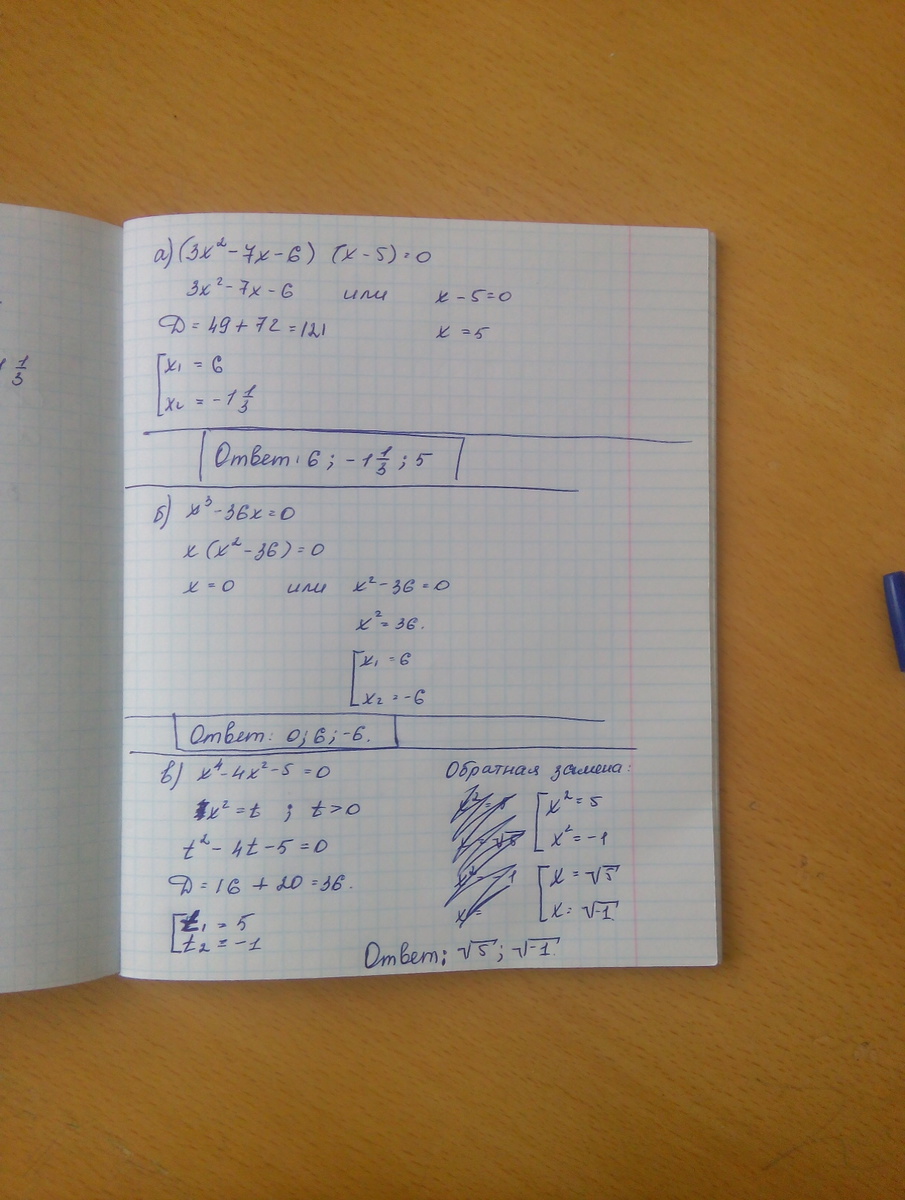 1 1/3
а) (3x² - 7x - 6) (x - 5) = 0
3x² - 7x - 6 или x - 5 = 0
D = 49 + 72 = 121 x = 5
[x₁ = 6
x₂ = -1 1/3
Ответ: 6; -1 1/3; 5
б) x³ - 36x = 0
x (x² - 36) = 0
x = 0 или x² - 36 = 0
x² = 36.
[x₁ = 6
x₂ = -6
Ответ: 0; 6; -6.
в) x⁴ - 4x² - 5 = 0
x² = t ; t > 0
t² - 4t - 5 = 0
D = 16 + 20 = 36.
[t₁ = 5
t₂ = -1
Обратная замена:
[x² = 5
x² = -1
[x = √5
x = √-1
Ответ: √5; √-1.